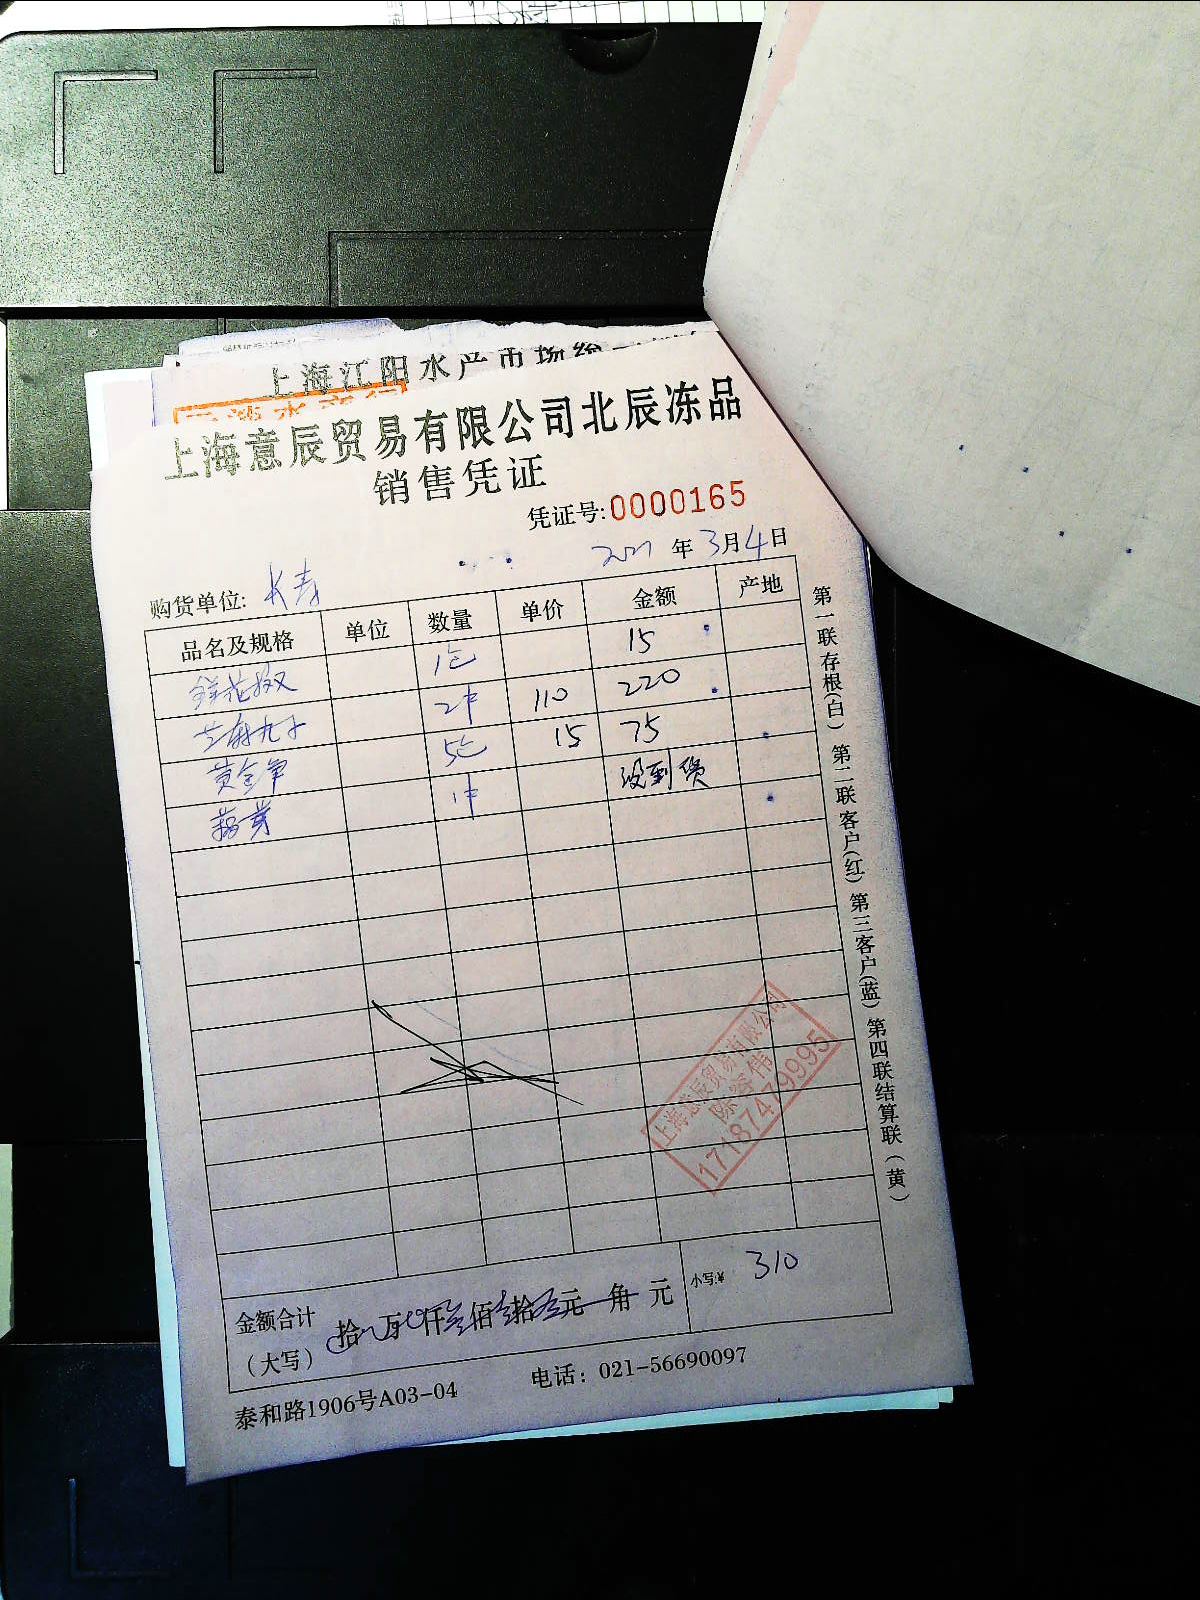 上海江阳水产市场
上海意辰贸易有限公司北辰冻品
销售凭证
凭证号:0000165
2021 年 3月4日
购货单位: 长寿
品名及规格 单位 数量 单价 金额 产地
1包 15
芝麻九子 2件 110 220
黄金 5包 15 75
1件 没到货
上海意辰贸易有限公司
陈容伟
17187479995
金额合计
(大写) 拾 万 仟 佰 拾 元 角 元 小写:¥ 310
泰和路1906号A03-04 电话: 021-56690097
第一联存根(白) 第二联客户(红) 第三客户(蓝) 第四联结算联(黄)